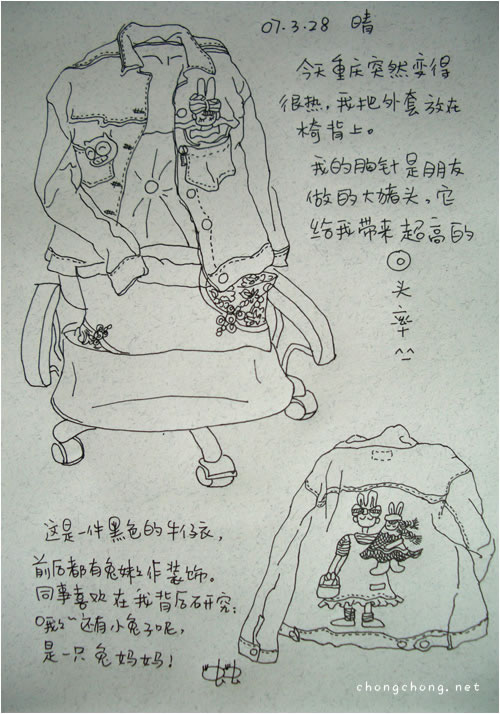 07.3.28 晴
今天重庆突然变得
很热，我把外套放在
椅背上。
我的胸针是朋友
做的大猪头，它
给我带来超高的
回
头
率
^^
这是一件黑色的牛仔衣，
前后都有兔妹妹作装饰。
同事喜欢在我背后研究：
哦~还有小兔子呢，
是一只兔妈妈！
虫虫
chongchong.net